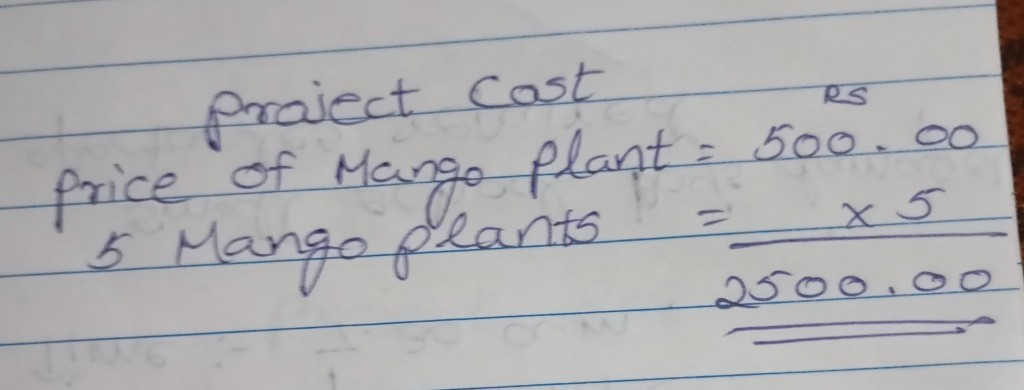 Project Cost
RS
Price of Mango Plant = 500.00
5 Mango Plants = x 5
2500.00